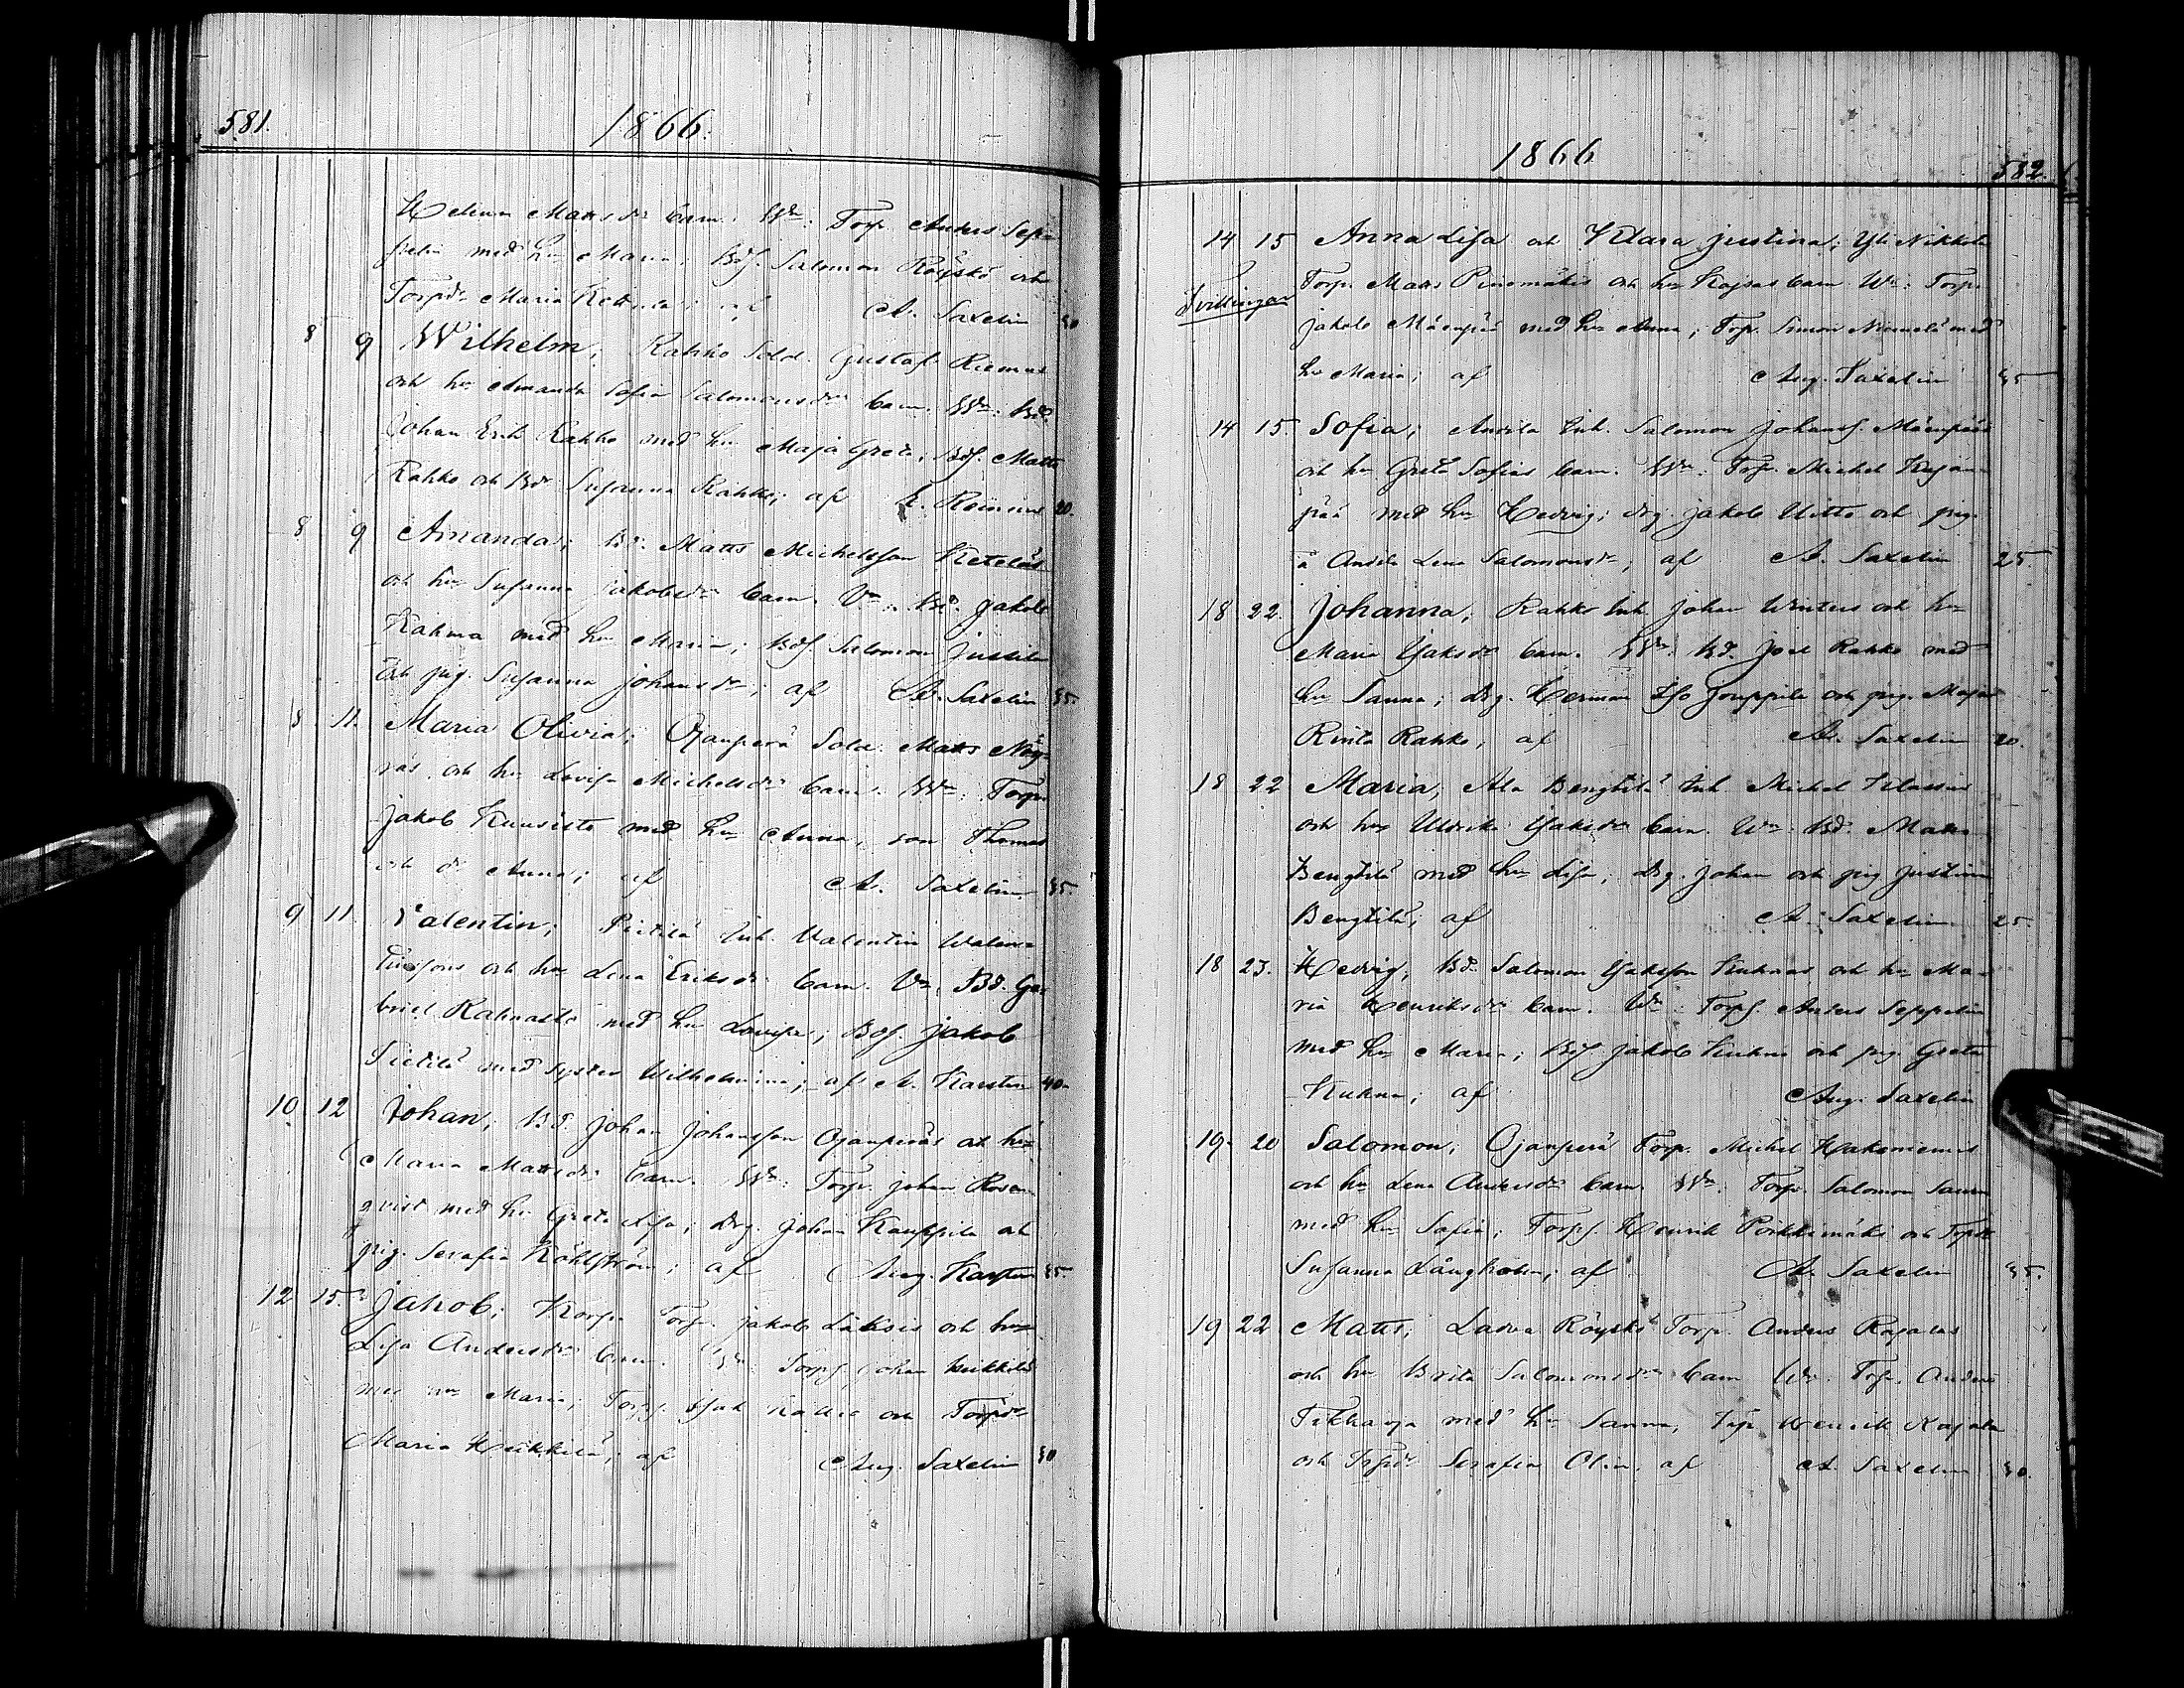 581.
1866.
Matts dr barn. Wn: Torp. Anders Sep-
pelin med hu Maria. Bds. Salomon Röyskö och
Torpdr Maria af A. Saxelin 30
8 9 Wilhelm; Rahko Sold. Gustaf Riemus
och hu Amanda Sofia Salomonsdr barn. Wn: Bd.
Johan Erik Rahko med hu Maja Greta; Bds. Matts
Rahko och Bdr Susanna Rahko; af 20.
8 9 Amanda; Bd. Matts Michelsson Keteläs
och hu Susanna Jakobsdr barn. Vn. Bd. Jakob
Rahma med hu Maria; Bds. Salomon Jussila
och pig. Susanna Johansdr; af A. Saxelin 35.
8 11. Maria Olivia; Ojanperä Sold. Matts Nÿg-
räs och hu Lovisa Michelsdr barn. Wn: Torp.
Jakob Kuusisto med hu Anna, son Thomas
och dr Anna; af A. Saxelin 35.
9 11. Valentin; Pietilä Inh. Valentin Walen-
tinssons och hu Lena Eriksdr barn. Vn. Bd. Ga-
briel Rahnasto med hu Lovisa; Bds. Jakob
Pietilä med syster Wilhelmina; af A. Karsten 40
10 12 Johan; Bd. Johan Johansson Ojanperäs och hu
Maria Mattsdr barn. Wn: Torp. Johan Rosen-
qvist med hu Greta Lisa; Drg. Johan Kauppila och
pig. Serafia Kåhlström; af Aug. Karsten 35.
12 15. Jakob; Korp. Torp. Jakob och hu
Lisa Andersdr barn. Wn Torps. Johan Heikkilä
med hu Maria; Torps. Isak och Torpdr
Maria Heikkilä; af Aug. Saxelin 30
1866
582.
14 15 Anna Lisa och Klara Justina; Yli Nikkola
Tvillingar
Torp. Matts Pinomäkis och hu Kajsas barn Wn: Torp.
Jakob Mäenpää med hu Anna; Torp. Simon med
hu Maria; af Aug. Saxelin 35
14 15. Sofia; Anttila Inh. Salomon Johanss. Mäenpääs
och hu Greta Sofias barn. Wn: Torp. Michel Kujan-
pää med hu Hedvig; drg. Jakob Uitto och pig.
å Anttila Lena Salomonsdr; af A. Saxelin 25.
18 22. Johanna; Rahko Inh. Johan Winters och hu
Maria Isaksdr barn. Wn: Bd. Joel Rahko med
hu Sanna; drg. Herman Iso Jouppila och pig. Maja
Rinta Rahko; af A. Saxelin 20.
18 22 Maria; Ala Bengtilä Inh. Michel Klassus
och hu Ulrika Isaksdr barn. Wn. Bd. Matts
Bengtilä med hu Lisa; drg. Johan och pig Justina
Bengtilä; af A. Saxelin 25.
18 23. Hedvig; Bd. Salomon Isaksson Kuhnas och hu Ma-
ria Henriksdr barn. Wn Torps. Anders Seppelin
med hu Maria; Bds Jakob Kuhna och pig. Greta
Kuhna; af Aug. Saxelin
19 20 Salomon; Ojanperä Torp. Michel Hakoniemis
och hu Lena Andersdr barn Wn. Torp. Salomon
med hu Sofia; Torps. Henrik Porkkimäki och Torpdr
Susanna Långholm; af A. Saxelin 35.
19 22 Matts; Ladva Röyskö Torp. Anders Rajalas
och hu Brita Salomonsdr barn Wn. Torp. Anders
med hu Sanna, Torp. Henrik Rajala
och Torpdr Serafia Olin. af A. Saxelin 30.